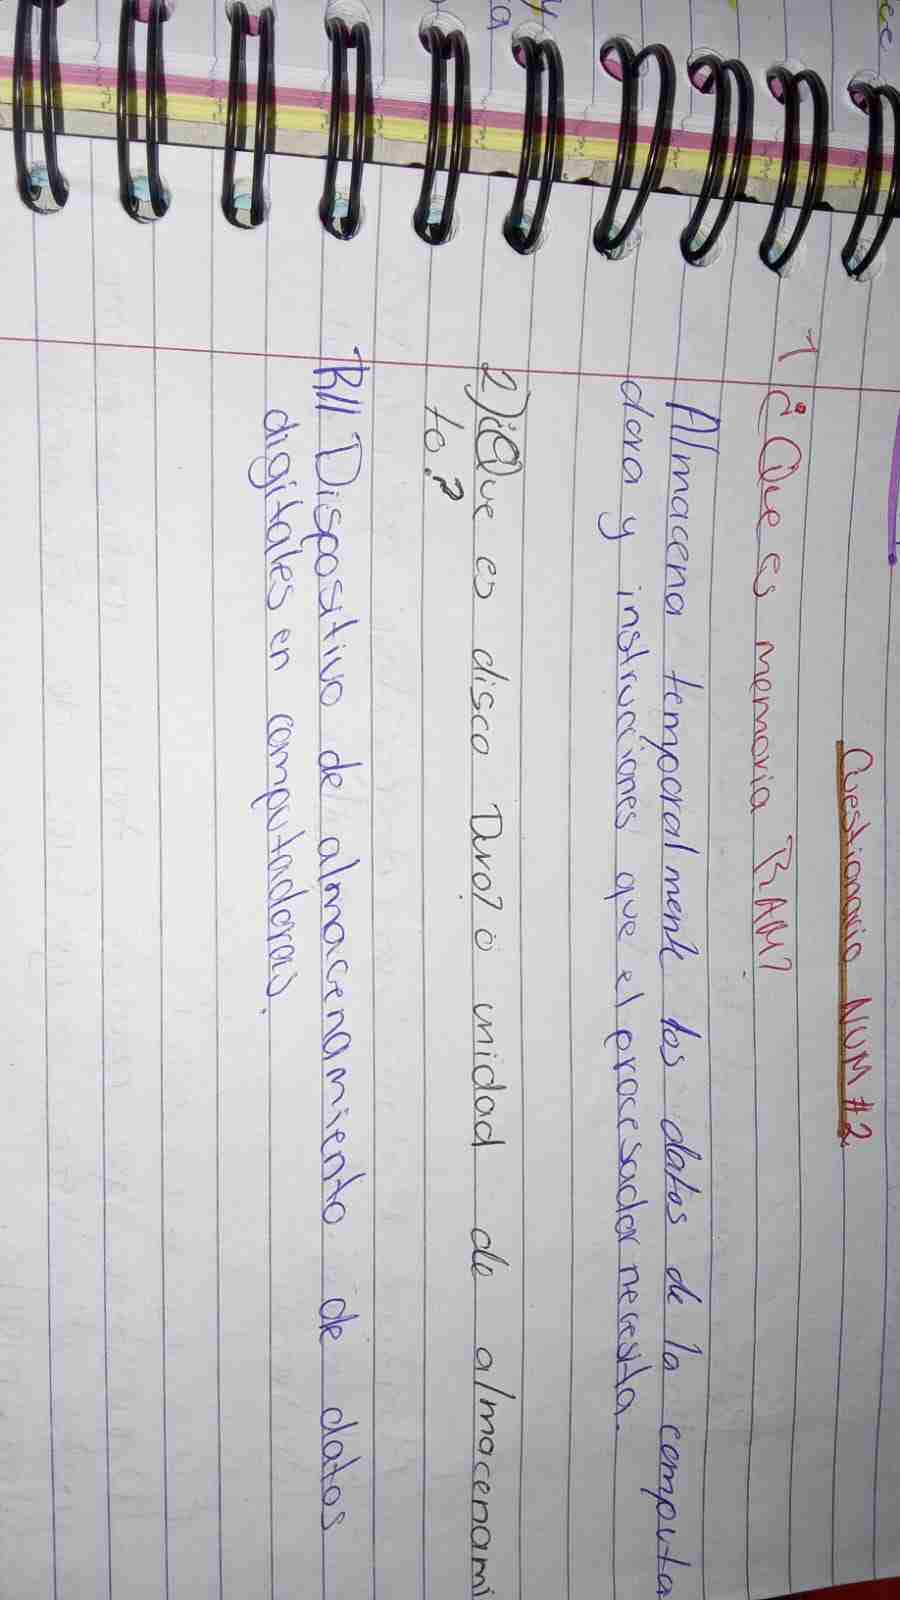 Cuestionario NUM #2
1 ¿Que es memoria RAM?
Almacena temporalmente los datos de la computa
dora y instrucciones que el procesador necesita.
2) ¿Que es disco Duro? o unidad de almacenami
to?
R// Dispositivo de almacenamiento de datos
digitales en computadoras.